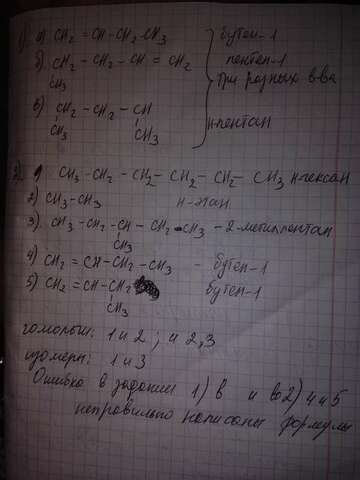 1) а) CH₂ = CH - CH₂ CH₃ бутен-1
б) CH₂ - CH₂ - CH = CH₂ пентен-1
CH₃
три разных в-ва
в) CH₂ - CH₂ - CH н-пентан
CH₃ CH₃
1) CH₃ - CH₂ - CH₂ - CH₂ - CH₂ - CH₃ н-гексан
2) CH₃ - CH₃ н-этан
3) CH₃ - CH₂ - CH - CH₂ - CH₃ - 2-метилпентан
CH₃
4) CH₂ = CH - CH₂ - CH₃ - бутен-1
5) CH₂ = CH - CH₂ бутен-1
CH₃
гомологи: 1 и 2 ; и 2,3
изомеры: 1 и 3
Ошибка в задании 1) в и во 2) 4 и 5
неправильно написаны формулы